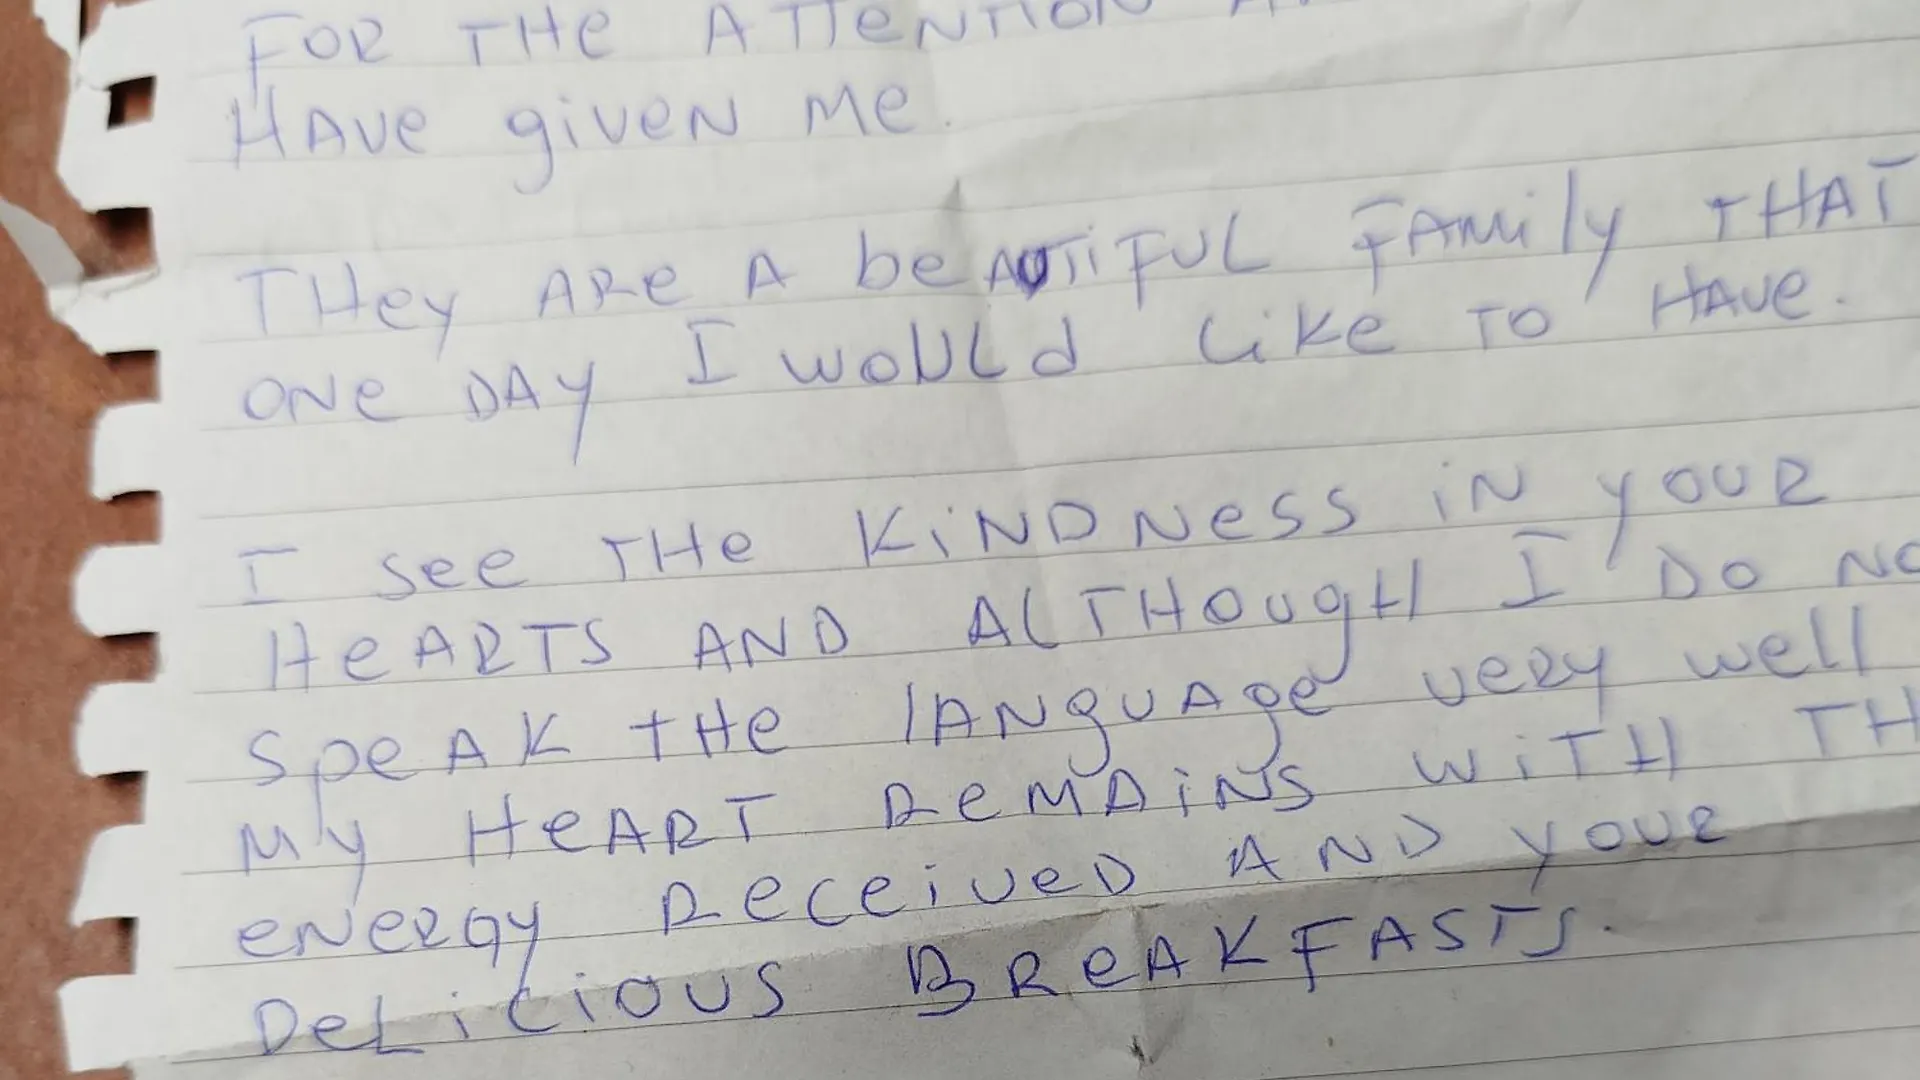 FOR THE ATTENTION
HAVE given Me.
THey ARe A beAUTiFUL FAMily THAT
ONe DAy I woULd Like TO HAVE.
I see THe KiNDNess iN youR
HeARTS AND ALTHOugH I DO
SpeAK tHe lANguAge veRy well
My HeART ReMAiNS WiTH
eNeRgy ReceiveD AND youR
DeLiciOUS BReAKFASTS.